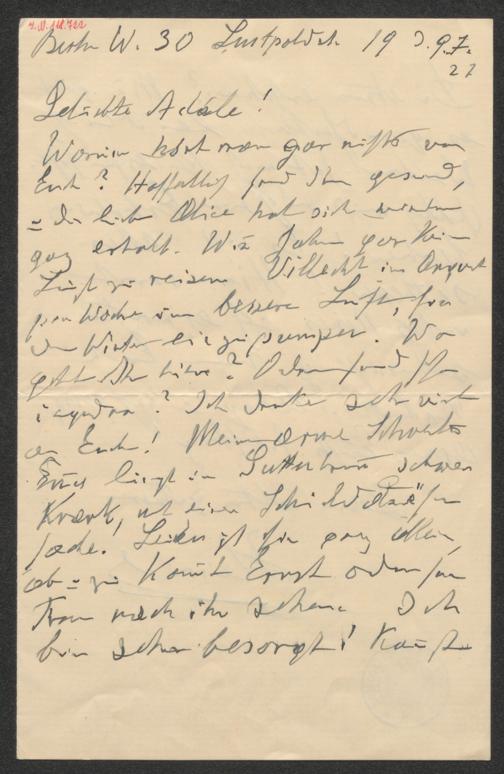 Berlin W. 30 Luitpoldstr. 19 3.9.7.
27
Geliebte Adele!
Warum hört man gar nichts von
Euch? Hoffentlich seid Ihr gesund,
= die liebe Alice hat sich wieder
ganz erholt. Wir haben gar kein
Lust zu reisen. Vielleicht im August
paar Woche um bessere Luft, für
den Winter einzupumpen. Wo
geht Ihr hin? Oder seid Ihr
irgendwo? Ich denke sehr viel
an Euch! Meine arme Schwester
liegt in schwer
krank, mit einer
Leider ist sie ganz allein,
ab = zu kommt Ernst oder
Frau nach ihr sehen. Ich
bin sehr besorgt!